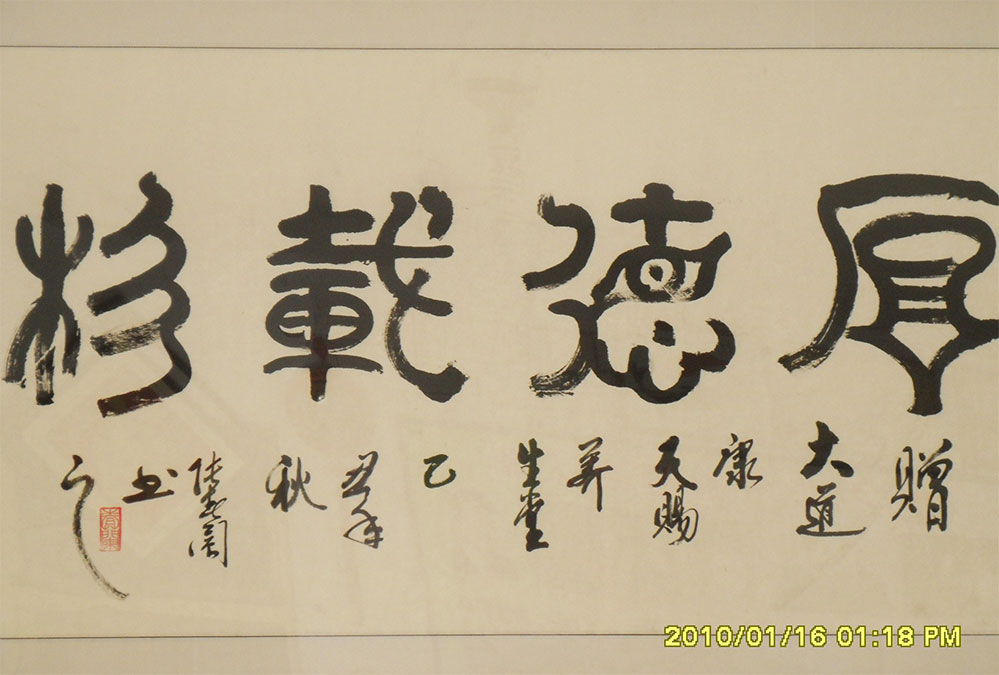 厚德載物
贈大道康天賜并生堂乙丑年秋书之
2010/01/16 01:18 PM